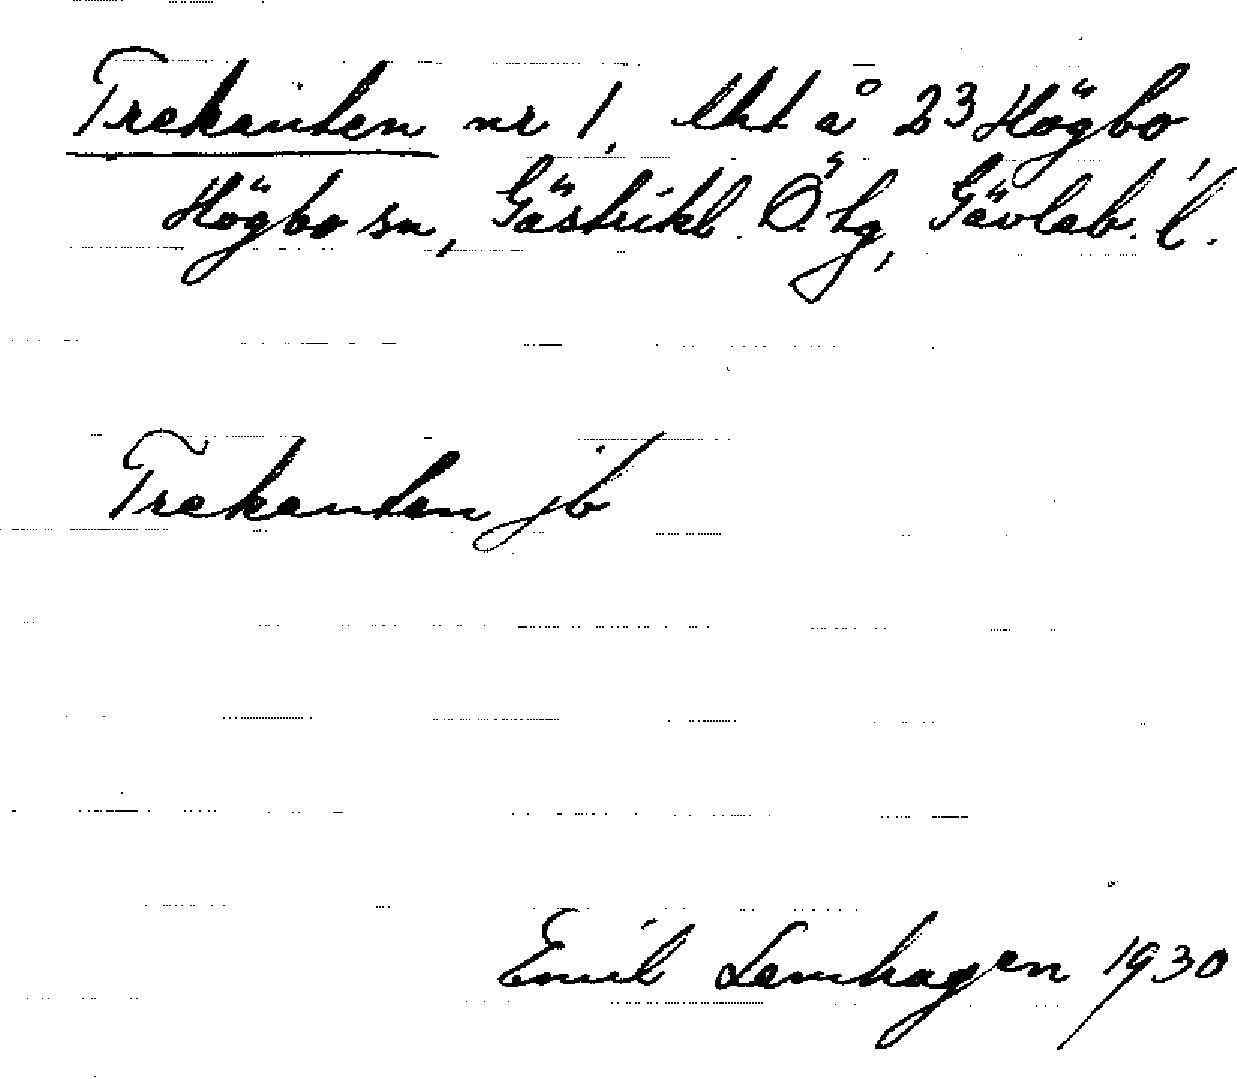 Trekanten nr 1, lht å 23 Högbo
Högbo sn, Gästrikl. Ö. tg, Gävleb. l.
Trekanten jb
Emil Lemhagen 1930